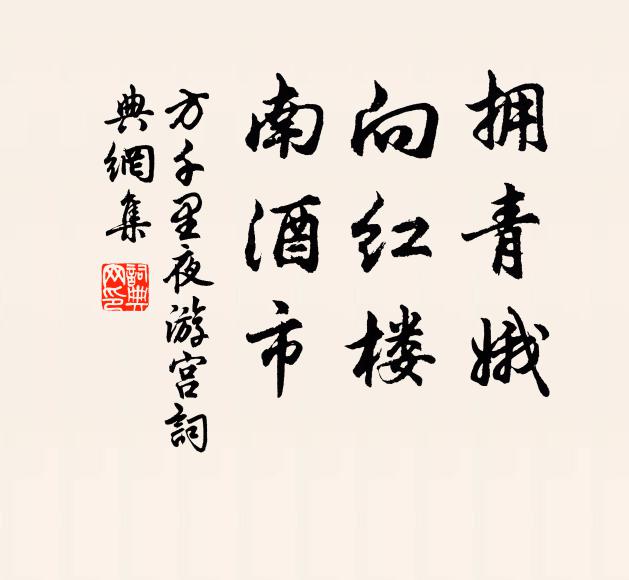 拥青娥
向红楼
南酒市
方千里夜游宫詞
典網集
詞典
网印